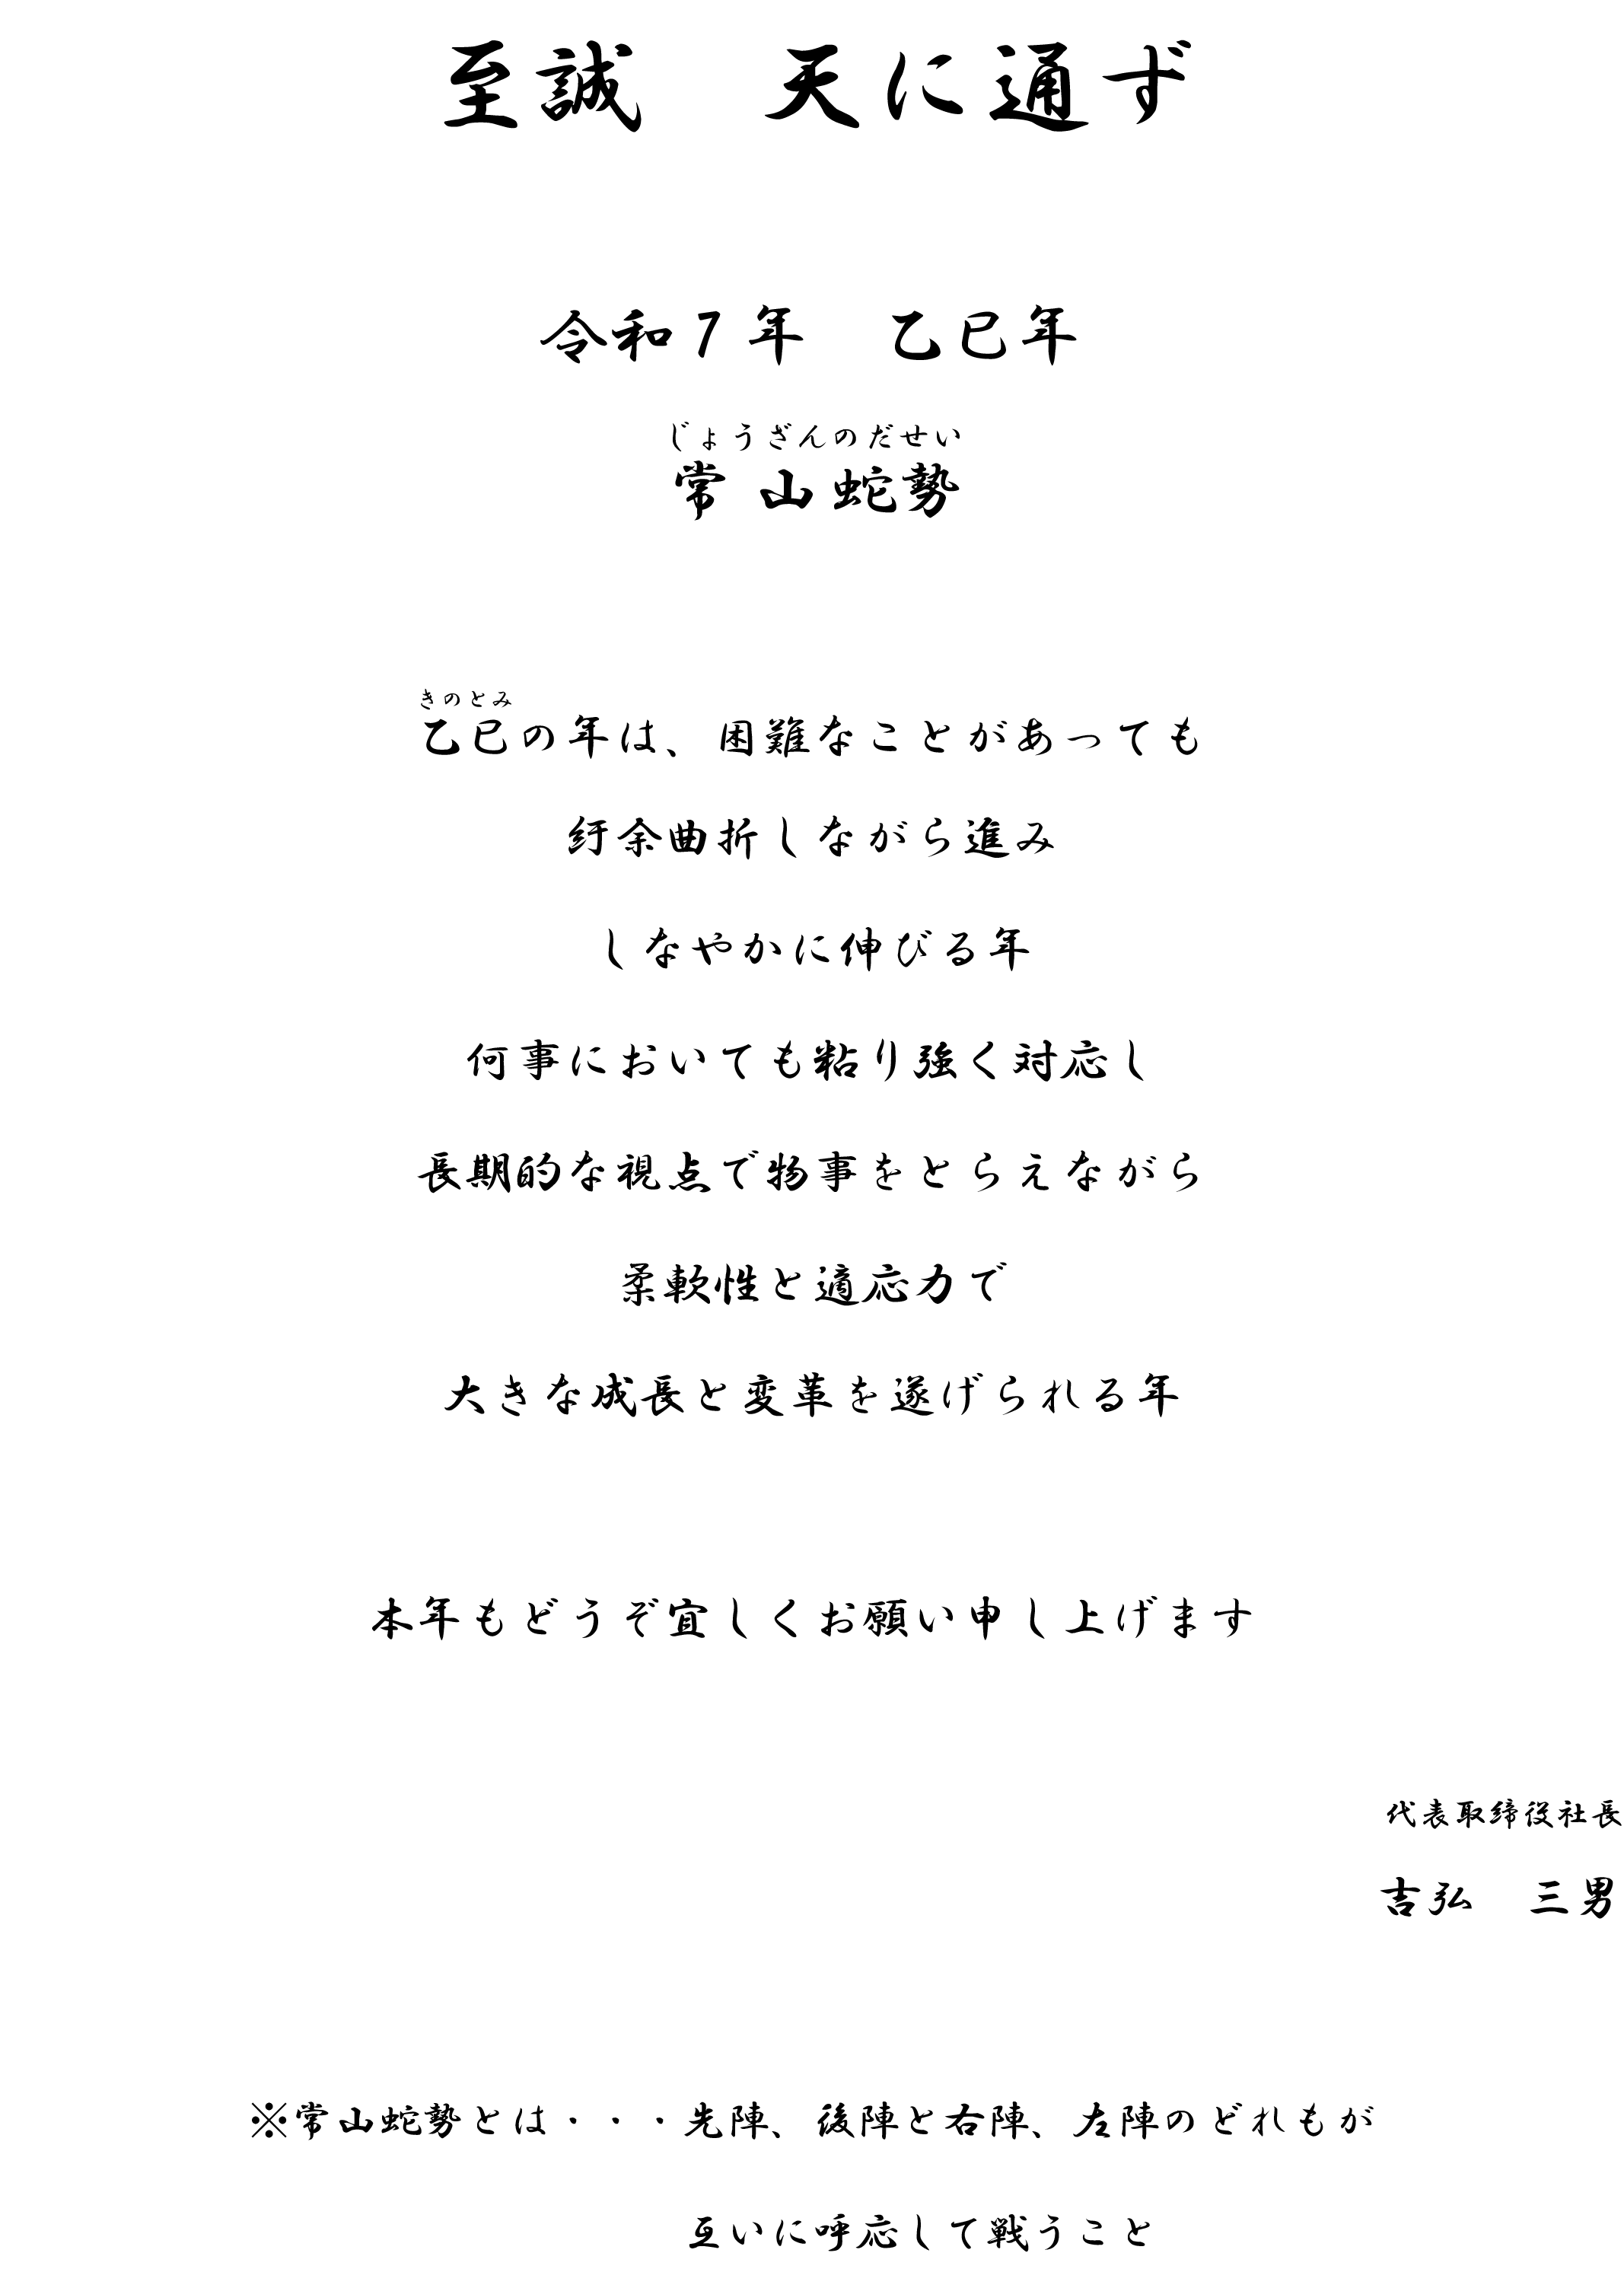 至誠　天に通ず
令和７年　乙巳年
じょうざんのだせい
常山蛇勢
きのとみ
乙巳の年は、困難なことがあっても
紆余曲折しながら進み
しなやかに伸びる年
何事においても粘り強く対応し
長期的な視点で物事をとらえながら
柔軟性と適応力で
大きな成長と変革を遂げられる年
本年もどうぞ宜しくお願い申し上げます
代表取締役社長
吉弘　三男
※常山蛇勢とは・・・先陣、後陣と右陣、左陣のどれもが
互いに呼応して戦うこと